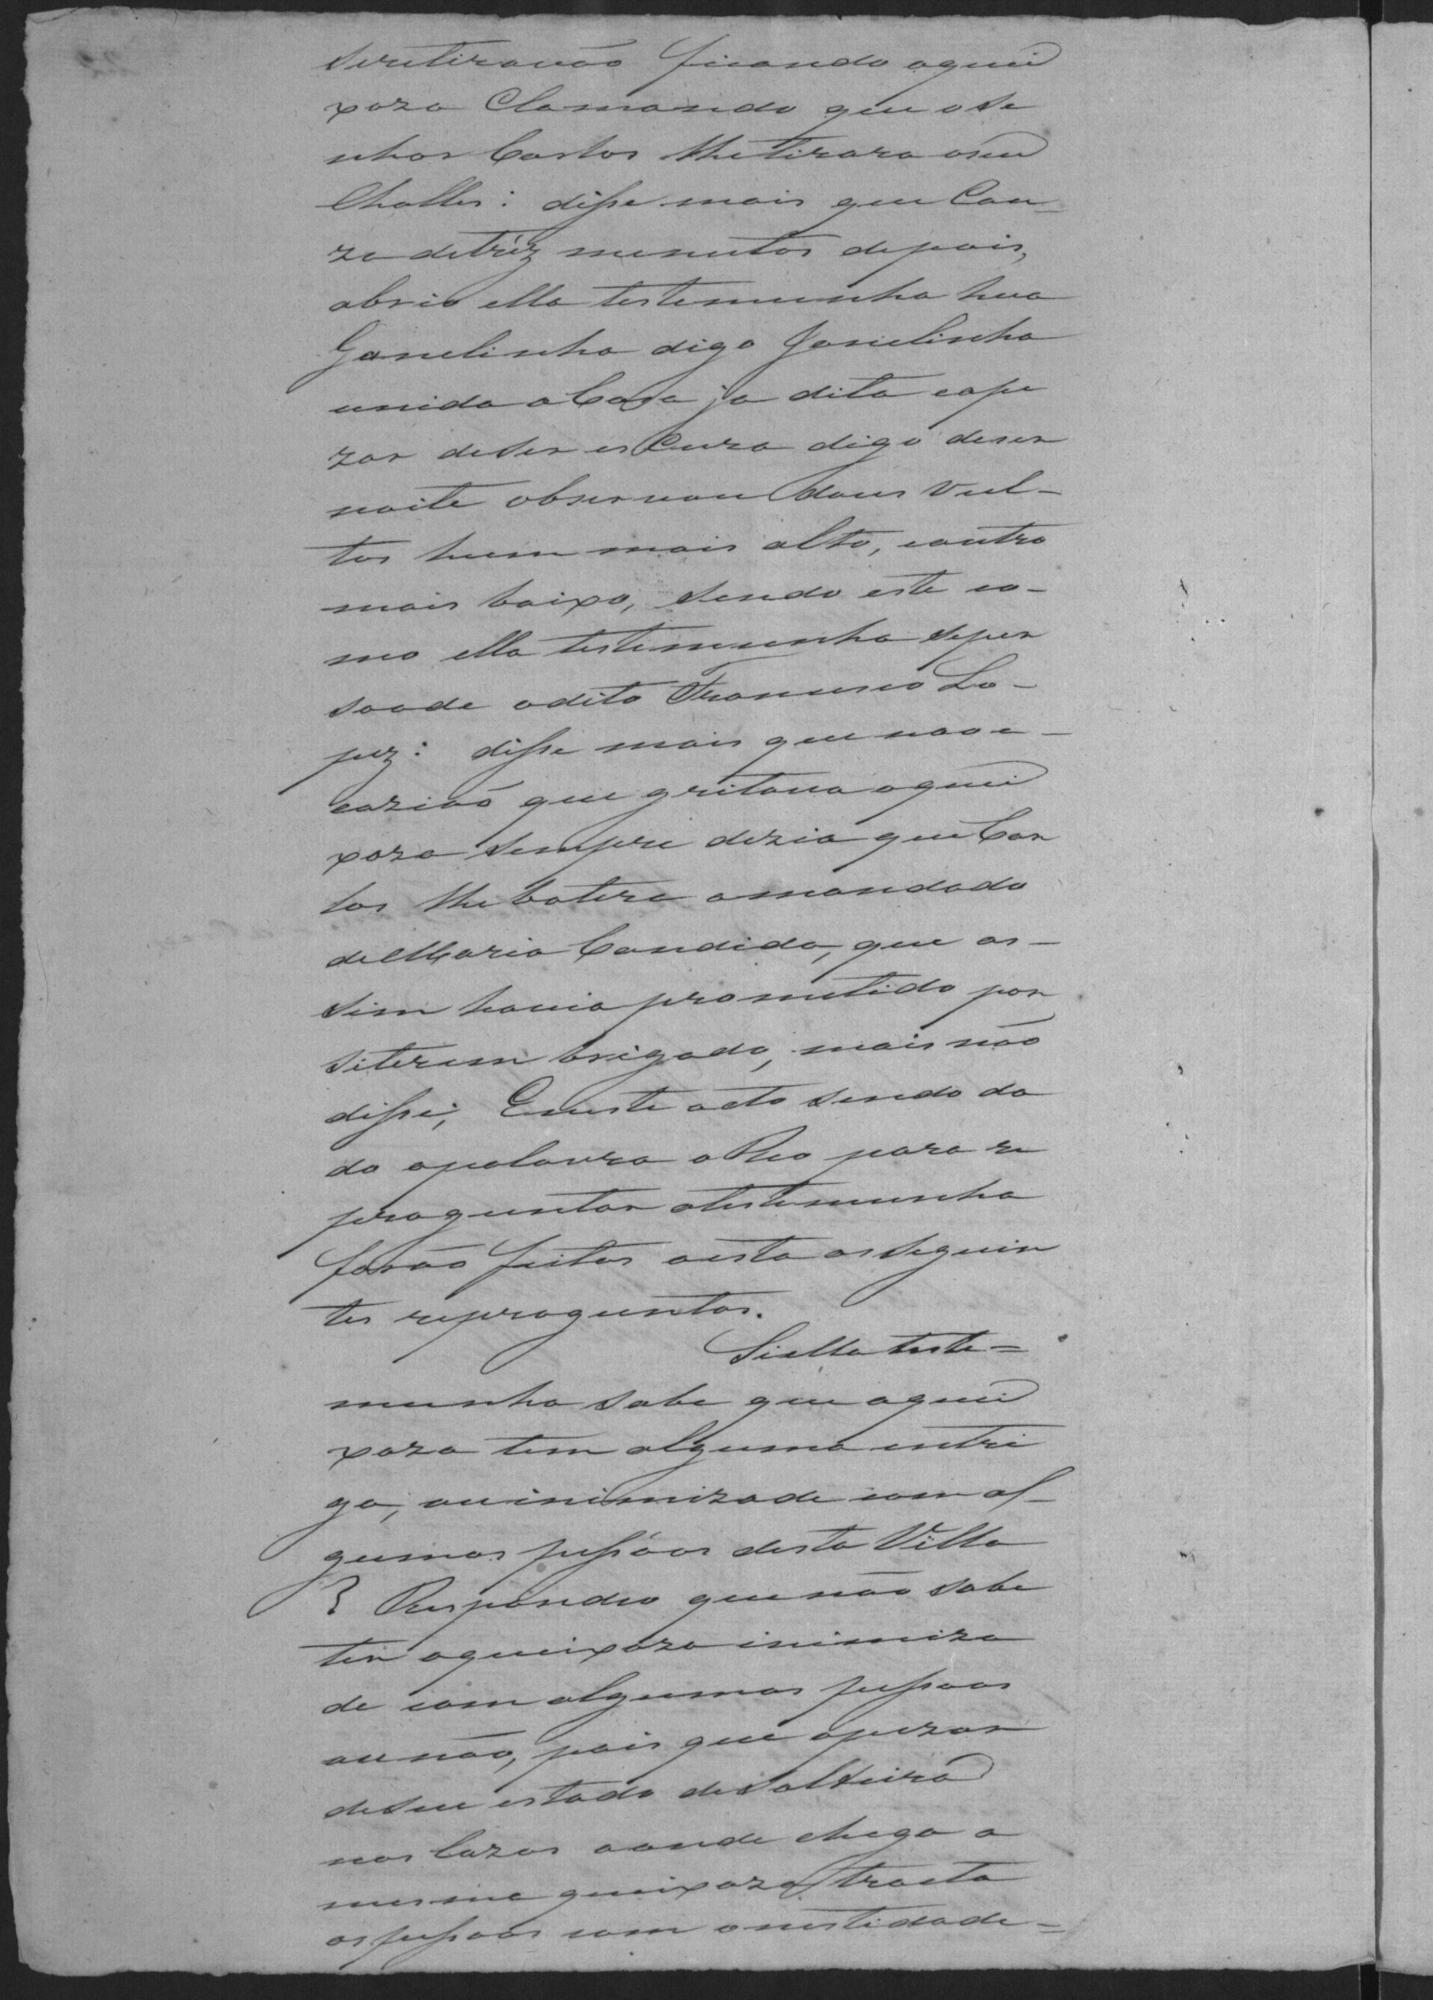 seretiravão ficando aquei
xoza Clamando que o Se
nhor Carlos lhetirara oseu
Challes: disse mais que Cou-
za detrez menutos depois,
abrio ella testemunha hua
Ganelinha digo Janelinha
unida a Caza ja dita eape
zar deser esCura digo deser
noite observou dous vul-
tos hum mais alto, eoutro
mais baixo, sendo este co-
mo ella testemunha seper
soade odito Francisco Lo-
pez: disse mais que nao c-
cazião que gritava aquei
xoza sempre dizia que Car
los lhe batera amandado
deMaria Candida, que as-
sim havia prometido por
siterem brigado, mais não
disse; Eneste acto sendo da
da apalavra oReo para re
preguntar atestemunha
forão feitas aesta asseguin
tes repreguntas.
Siella teste=
munha sabe que aquei
xoza tem alguma entri
ga, ouinimizade com al-
gumas pessoas desta Villa
? Respondeo que não sabe
ter aqueixoza inimiza
de com algumas pessoas
ounão, pois que apezar
deseu estado desolteira
nas Cazas aonde chega a
mesma queixoza tracta
aspessoas com onestidade=